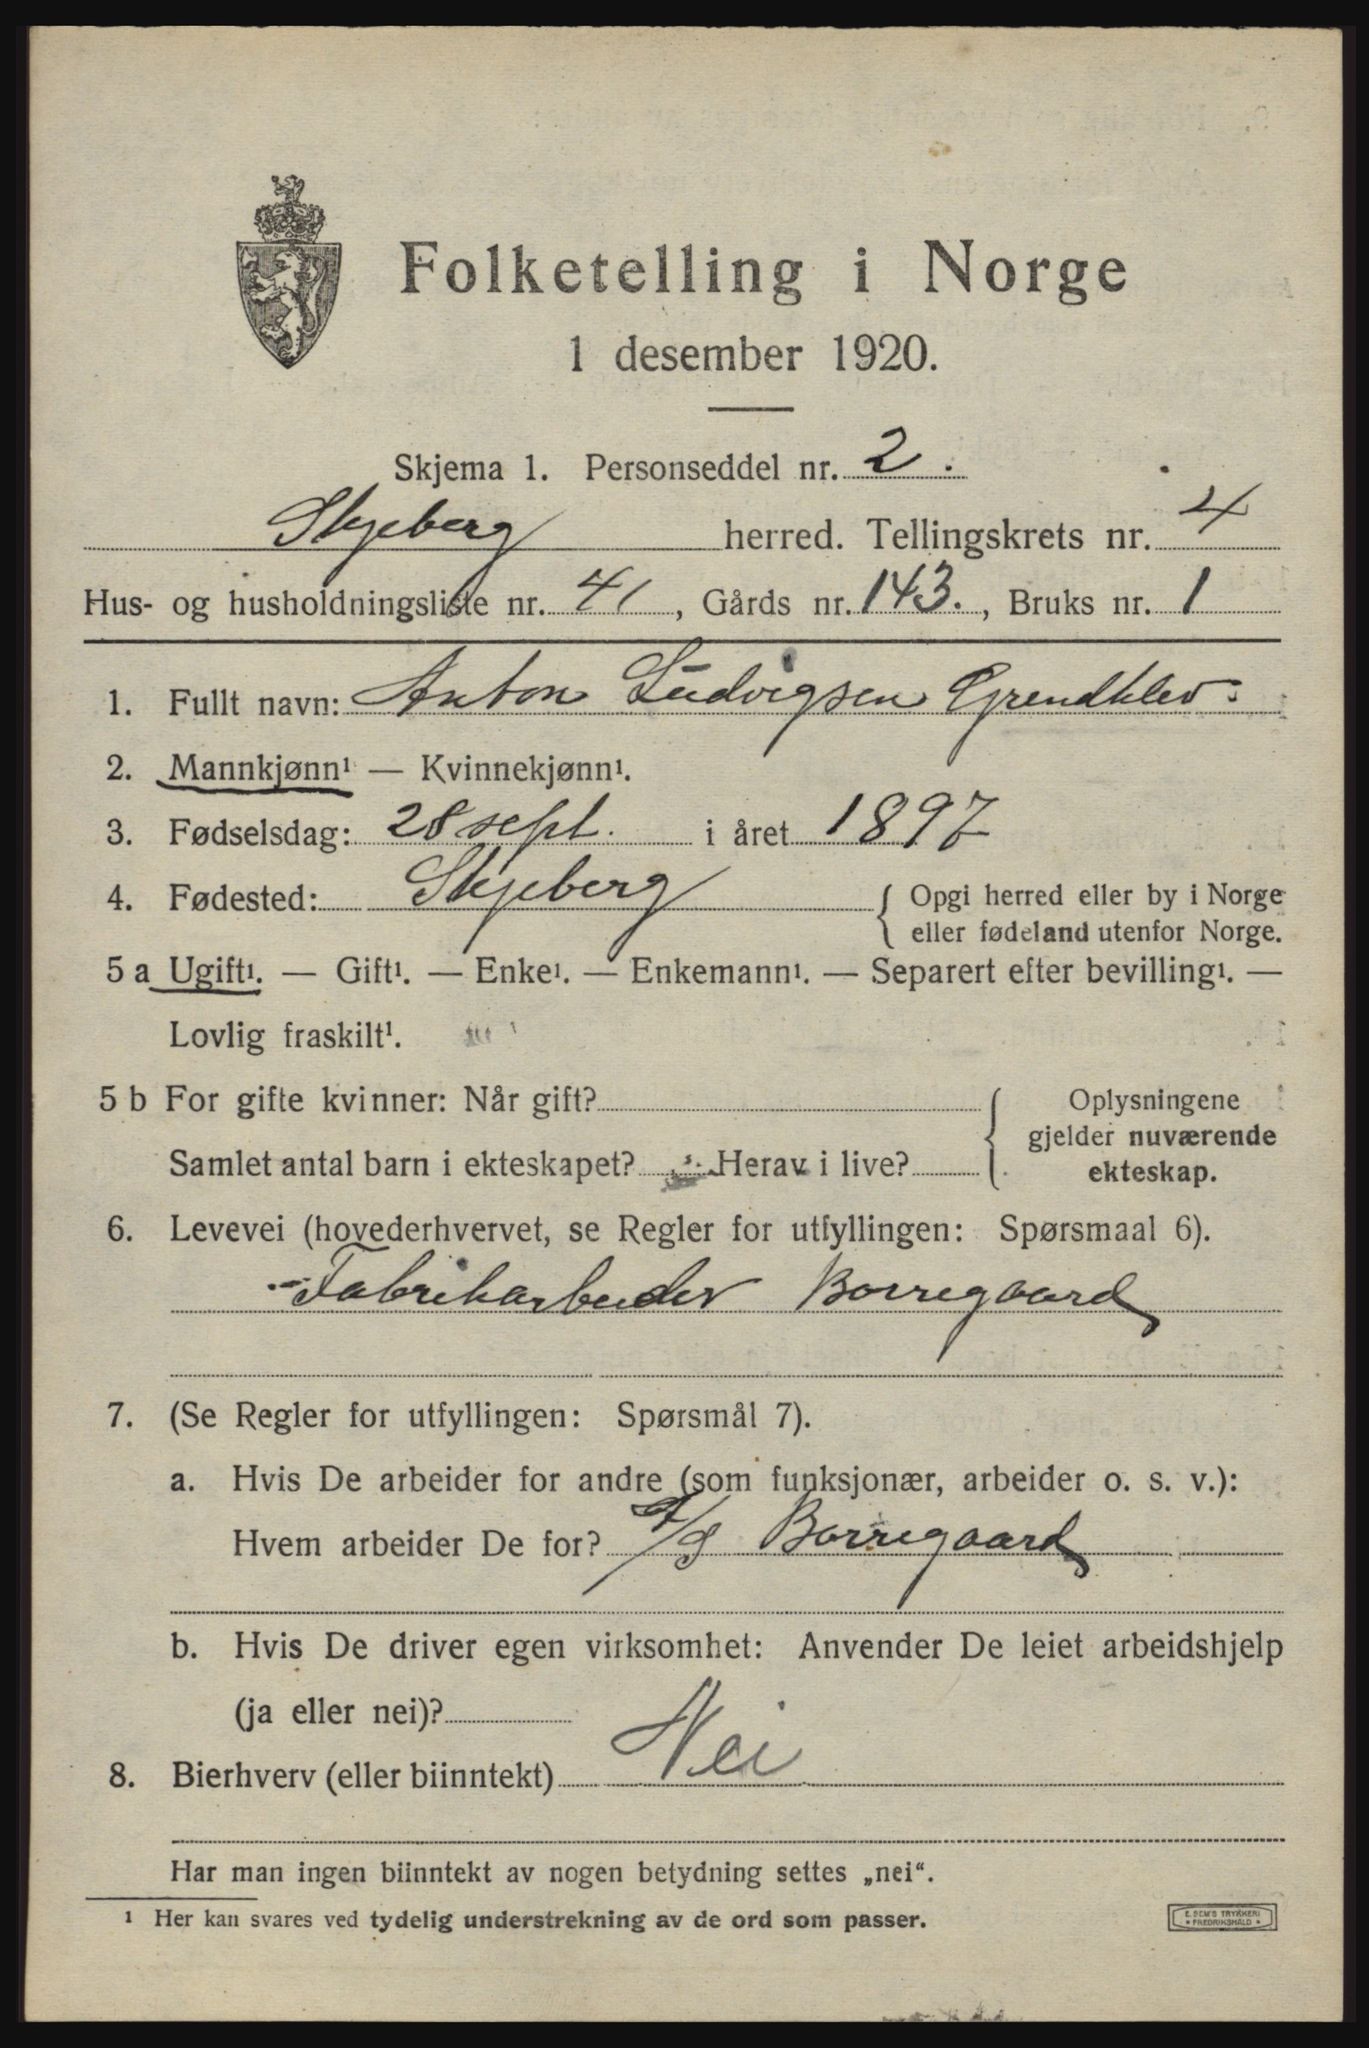 Folketelling i Norge
1 desember 1920.
Skjema 1. Personseddel nr. 2.
Skjeberg herred. Tellingskrets nr. 4
Hus- og husholdningsliste nr. 41, Gårds nr. 143., Bruks nr. 1
1. Fullt navn: Anton Ludvigsen Grendklev
2. Mannkjønn¹ — Kvinnekjønn¹.
3. Fødselsdag: 28 sept. i året 1897
4. Fødested: Skjeberg { Opgi herred eller by i Norge
eller fødeland utenfor Norge.
5 a Ugift¹. — Gift¹. — Enke¹. — Enkemann¹. — Separert efter bevilling¹. —
Lovlig fraskilt¹.
5 b For gifte kvinner: Når gift?
Samlet antal barn i ekteskapet? Herav i live?
{ Oplysningene
gjelder nuværende
ekteskap.
6. Levevei (hovederhvervet, se Regler for utfyllingen: Spørsmaal 6).
Fabrikarbeider Borregaard
7. (Se Regler for utfyllingen: Spørsmål 7).
a. Hvis De arbeider for andre (som funksjonær, arbeider o. s. v.):
Hvem arbeider De for? A/S Borregaard
b. Hvis De driver egen virksomhet: Anvender De leiet arbeidshjelp
(ja eller nei)?
8. Bierhverv (eller biinntekt) Nei
Har man ingen biinntekt av nogen betydning settes „nei“.
¹ Her kan svares ved tydelig understrekning av de ord som passer.
E. SEM'S TRYKKERI
FREDRIKSHALD